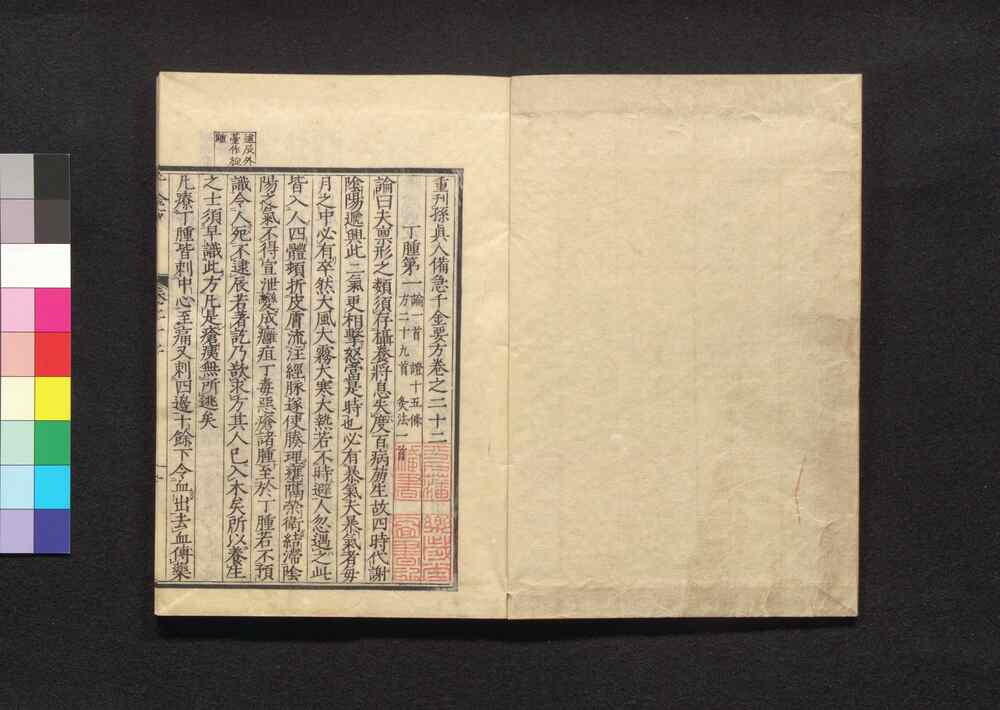 重刊孫真人備急千金要方卷之二十二
丁腫第一 論一首 證十五條
方二十九首 灸法一首
論曰夫禀形之類須存攝養將息失度百病萌生故四時代謝
陰陽遞興此二氣更相擊怒當是時也必有暴氣夫暴氣者每
月之中必有卒然大風大霧大寒大熱若不時避人忽遇之此
皆入人四體頞折皮膚流注經脉遂使腠理壅隔榮衛結滯陰
陽之氣不得宣泄變成癰疽丁毒惡瘡諸腫至於丁腫若不預
識令人死不逮辰若著訖乃欲求方其人已入木矣所以養生
之士須早識此方凡是瘡痍無所逃矣
凡療丁腫皆刺中心至痛又刺四邊十餘下令血出去血傅藥
逮辰外
臺作
腫